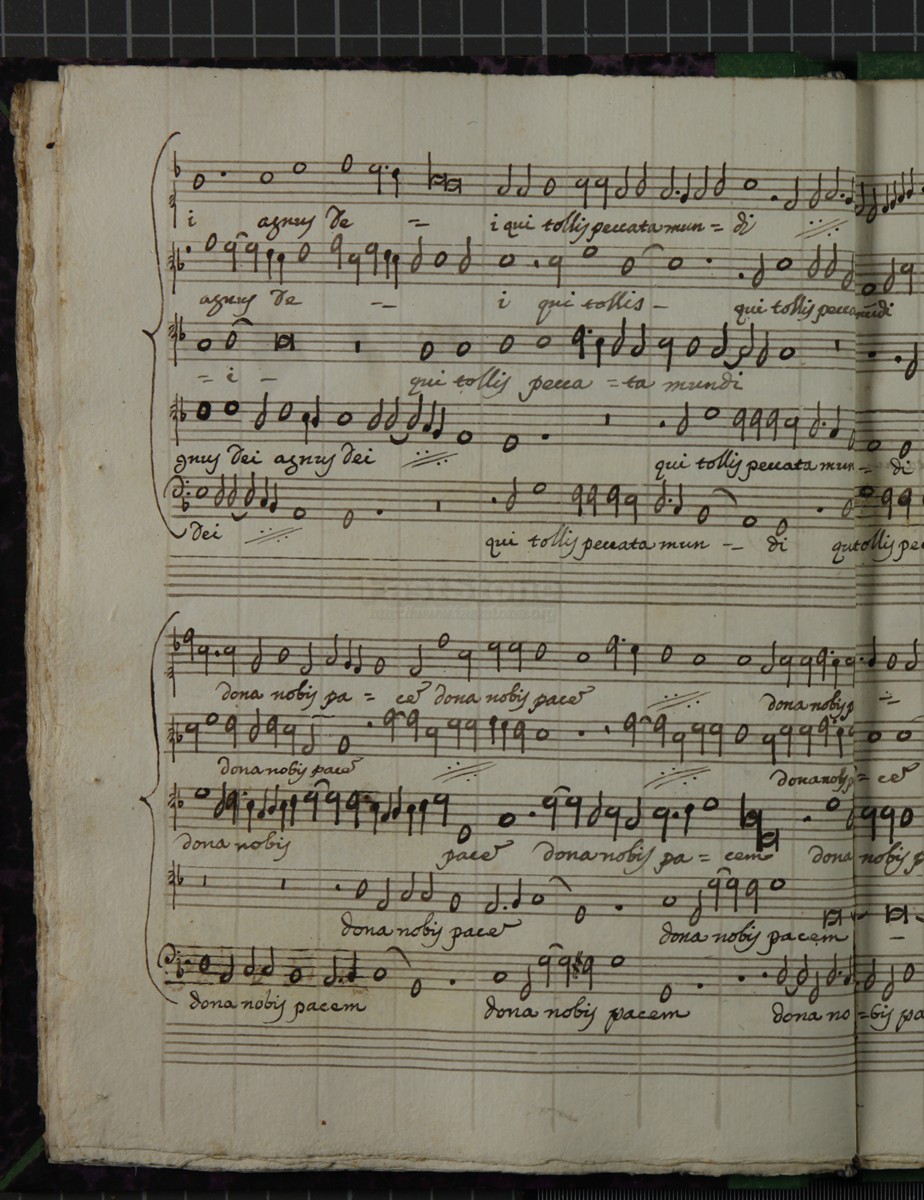 i agnus de = i qui tollis peccata mun = di
agnus de -- i qui tollis - qui tollis pecca mūdi
= i - qui tollis pecca = ta mundi
gnus dei agnus dei qui tollis peccata mun = di
dei qui tollis peccata mun -- di qui tollis pe
dona nobis pa = cē dona nobis pacē dona nobis p =
dona nobis pacē dona nobis p = cē
dona nobis pacē dona nobis pa = cem dona nobis p
dona nobis pacē dona nobis pacem -
dona nobis pacem dona nobis pacem dona no = bis pa